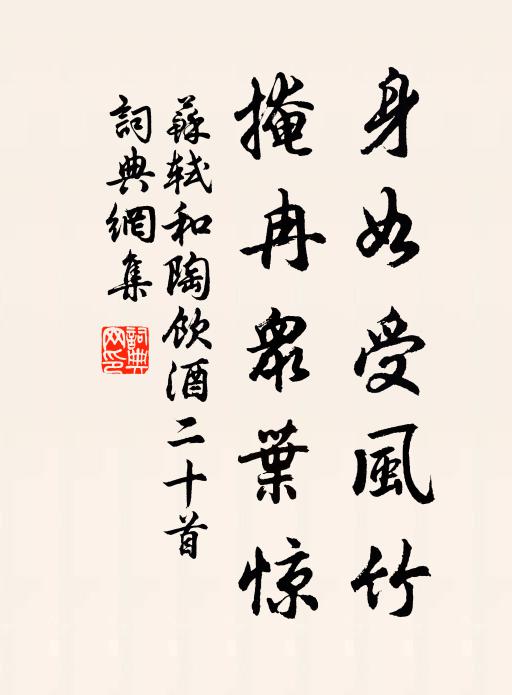 身如受風竹
掩冉眾葉惊
蘇軾和陶飲酒二十首
詞典網集
詞典
网印